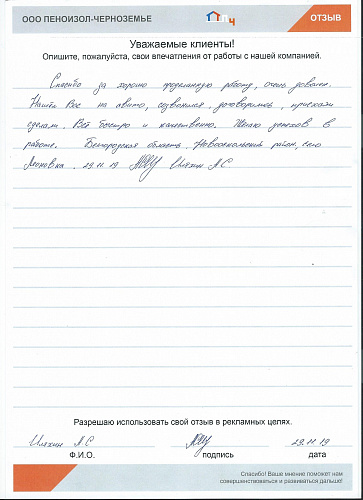 ООО ПЕНОИЗОЛ-ЧЕРНОЗЕМЬЕ
ПЧ
ОТЗЫВ
Уважаемые клиенты!
Опишите, пожалуйста, свои впечатления от работы с нашей компанией.
Спасибо за хорошо проделанную работу, очень доволен.
Нашёл Вас на авито, созвонился, договорились, приехали
сделали. Всё быстро и качественно. Желаю успехов в
работе. Белгородская область, Новооскольский район, село
29.11.19 Иляхин А.С
Разрешаю использовать свой отзыв в рекламных целях.
Иляхин А.С 29.11.19
Ф.И.О. подпись дата
Спасибо! Ваше мнение поможет нам
совершенствоваться и развиваться дальше!